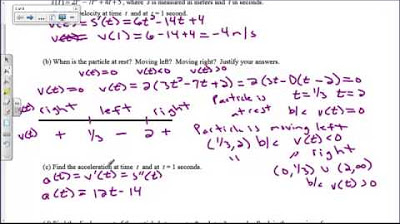 where s is measured in meters and t in seconds.
velocity at time t and at t = 1 second.
v(t) = s'(t) = 6t² - 14t + 4
v(1) = 6 - 14 + 4 = -4 m/s
(b) When is the particle at rest? Moving left? Moving right? Justify your answers.
v(t) = 0 v(t) < 0 v(t) > 0
v(t) = 0 v(t) = 2(3t² - 7t + 2) = 2(3t - 1)(t - 2) = 0
right left right Particle is t = 1/3 t = 2
at rest b/c v(t) = 0
v(t) + 1/3 - 2 + Particle is moving left
(1/3, 2) b/c v(t) < 0
" " right
(0, 1/3) ∪ (2, ∞)
b/c v(t) > 0
(c) Find the acceleration at time t and at t = 1 seconds.
a(t) = v'(t) = s''(t)
a(t) = 12t - 14